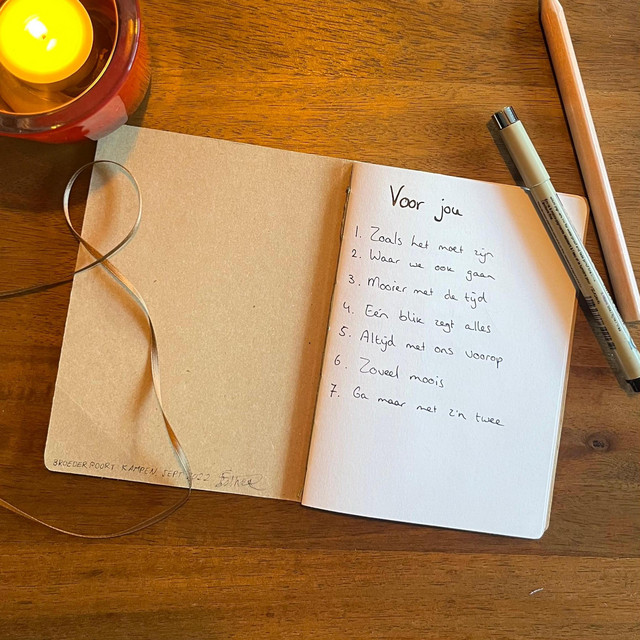 Voor jou
1. Zoals het moet zijn
2. Waar we ook gaan
3. Mooier met de tijd
4. Eén blik zegt alles
5. Altijd met ons voorop
6. Zoveel moois
7. Ga maar met z'n twee
BROEDERPOORT KAMPEN SEPT 2022